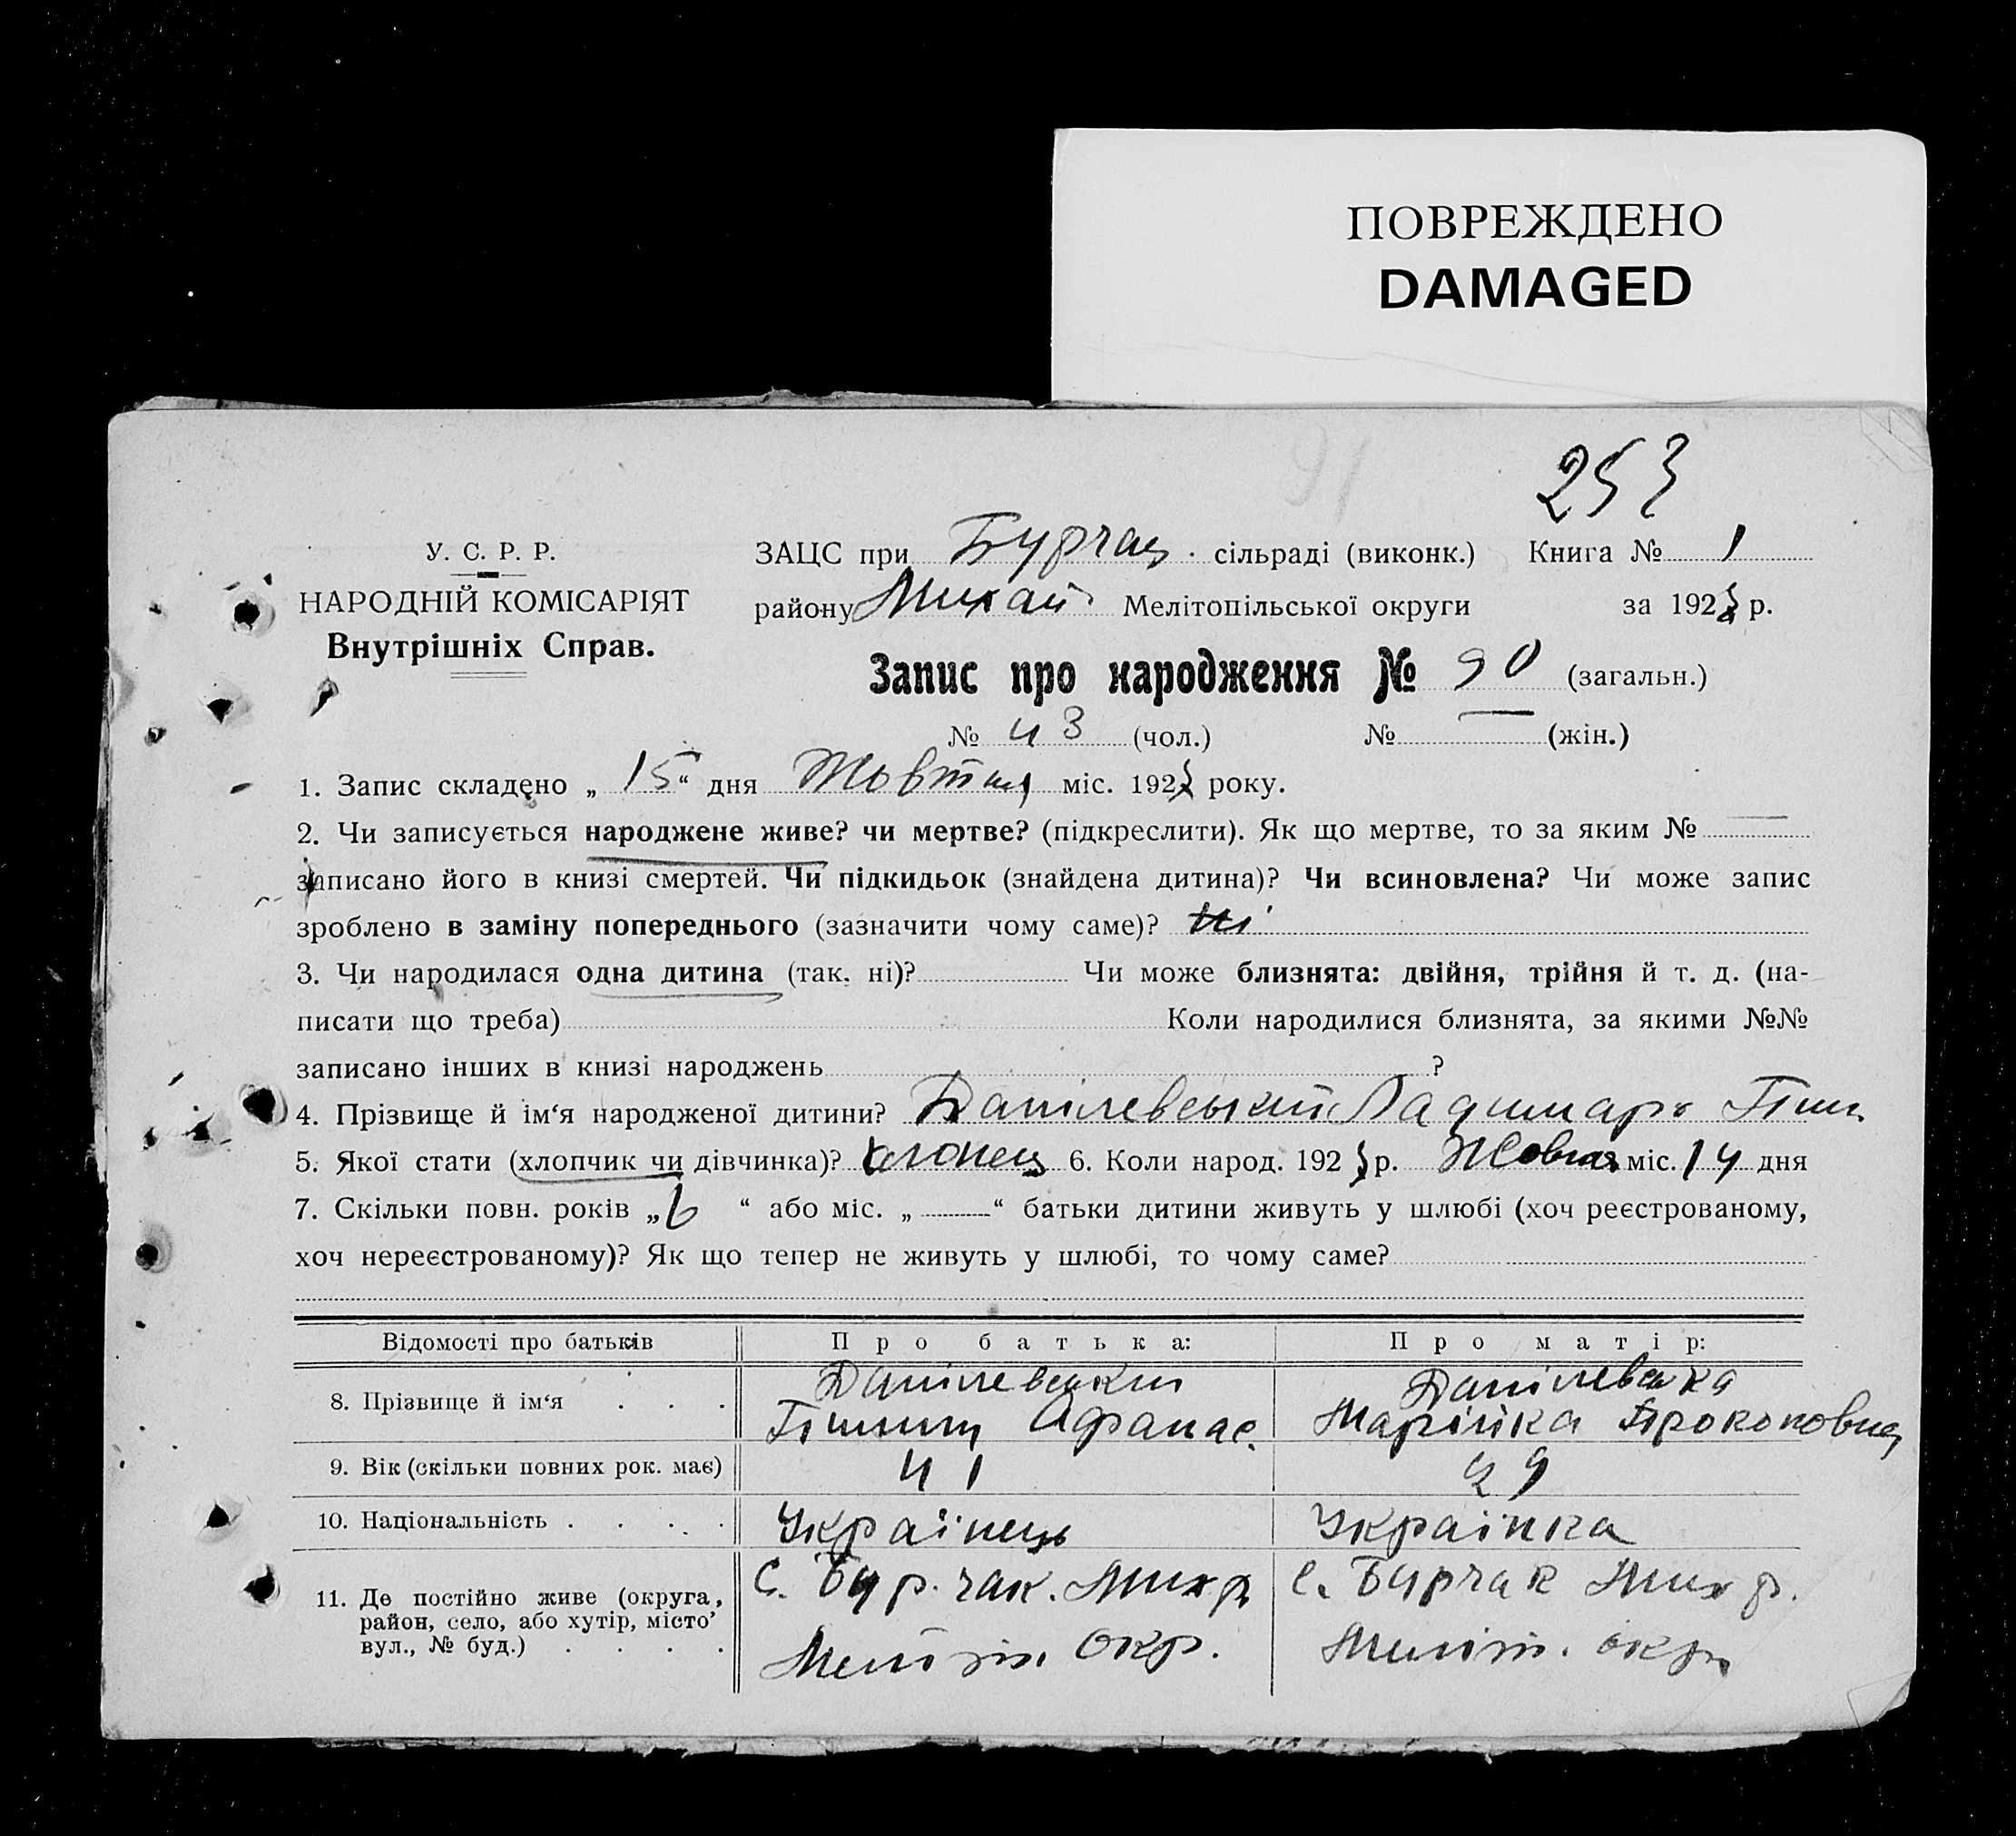 ПОВРЕЖДЕНО
DAMAGED
253
У. С. Р. Р.
НАРОДНІЙ КОМІСАРІЯТ
Внутрішніх Справ.
ЗАЦС при Бурчац. сільраді (виконк.) Книга № 1
району Михай Мелітопільської округи за 192 р.
Запис про народження № 90 (загальн.)
№ 43 (чол.) № — (жін.)
1. Запис складено „ 15 “ дня Жовтня міс. 192 року.
2. Чи записується народжене живе? чи мертве? (підкреслити). Як що мертве, то за яким № —
записано його в книзі смертей. Чи підкидьок (знайдена дитина)? Чи всиновлена? Чи може запис
зроблено в заміну попереднього (зазначити чому саме)? ні
3. Чи народилася одна дитина (так, ні)? Чи може близнята: двійня, трійня й т. д. (на-
писати що треба) Коли народилися близнята, за якими №№
записано інших в книзі народжень ?
4. Прізвище й ім‘я народженої дитини? Данілевський
5. Якої стати (хлопчик чи дівчинка)? хлопець 6. Коли народ. 192 р. Жовтня міс. 14 дня
7. Скільки повн. років „ 6 “ або міс. „ — “ батьки дитини живуть у шлюбі (хоч реєстрованому,
хоч нереєстрованому)? Як що тепер не живуть у шлюбі, то чому саме?
Відомості про батьків Про батька: Про матір:
8. Прізвище й ім‘я . . . Данілевський Данілевська
Афанас. Марійка Прокоповна
9. Вік (скільки повних рок. має) 41 29
10. Національність . . . . Українець Українка
11. Де постійно живе (округа, район, село, або хутір, місто’ вул., № буд.) . . . . С. Бурчак. Мих р. С. Бурчак Мих р.
Меліт. окр. Меліт. окр.